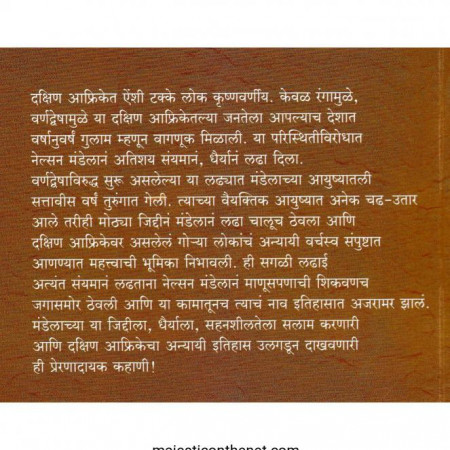 दक्षिण आफ्रिकेत ऐंशी टक्के लोक कृष्णवर्णीय. केवळ रंगामुळे,
वर्णद्वेषामुळे या दक्षिण आफ्रिकेतल्या जनतेला आपल्याच देशात
वर्षानुवर्षं गुलाम म्हणून वागणूक मिळाली. या परिस्थितीविरोधात
नेल्सन मंडेलानं अतिशय संयमानं, धैर्यानं लढा दिला.
वर्णद्वेषाविरुद्ध सुरू असलेल्या या लढ्यात मंडेलाच्या आयुष्यातली
सत्तावीस वर्षं तुरुंगात गेली. त्याच्या वैयक्तिक आयुष्यात अनेक चढ-उतार
आले तरीही मोठ्या जिद्दीनं मंडेलानं लढा चालूच ठेवला आणि
दक्षिण आफ्रिकेवर असलेलं गोऱ्या लोकांचं अन्यायी वर्चस्व संपुष्टात
आणण्यात महत्त्वाची भूमिका निभावली. ही सगळी लढाई
अत्यंत संयमानं लढताना नेल्सन मंडेलानं माणूसपणाची शिकवणच
जगासमोर ठेवली आणि या कामातूनच त्याचं नाव इतिहासात अजरामर झालं.
मंडेलाच्या या जिद्दीला, धैर्याला, सहनशीलतेला सलाम करणारी
आणि दक्षिण आफ्रिकेचा अन्यायी इतिहास उलगडून दाखवणारी
ही प्रेरणादायक कहाणी!
majesticonthenet.com